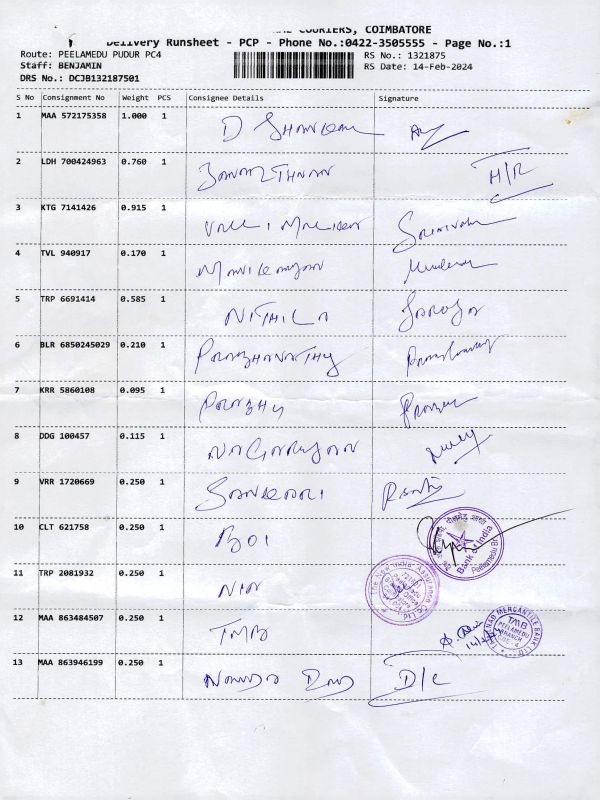 COURIERS, COIMBATORE
Delivery Runsheet - PCP - Phone No.:0422-3505555 - Page No.:1
Route: PEELAMEDU PUDUR PC4 RS No.: 1321875
Staff: BENJAMIN RS Date: 14-Feb-2024
DRS No.: DCJB132187501
S No Consignment No Weight PCS Consignee Details Signature
1 MAA 572175358 1.000 1 D SHANKAR
2 LDH 700424963 0.760 1 H/R
3 KTG 7141426 0.915 1
4 TVL 940917 0.170 1 MANIKANDAN
5 TRP 6691414 0.585 1 NITHILA
6 BLR 6850245029 0.210 1 PRABHAVATHY
7 KRR 5860108 0.095 1 PRABHU
8 DDG 100457 0.115 1 NAGARAJAN
9 VRR 1720669 0.250 1 SANKARI
10 CLT 621758 0.250 1 BOI Bank of India Peelamedu Br.
11 TRP 2081932 0.250 1 NIA The New India Assurance Co. Ltd
12 MAA 863484507 0.250 1 TMB TAMILNAD MERCANTILE BANK LTD. TMB PEELAMEDU BRANCH
13 MAA 863946199 0.250 1 D/C